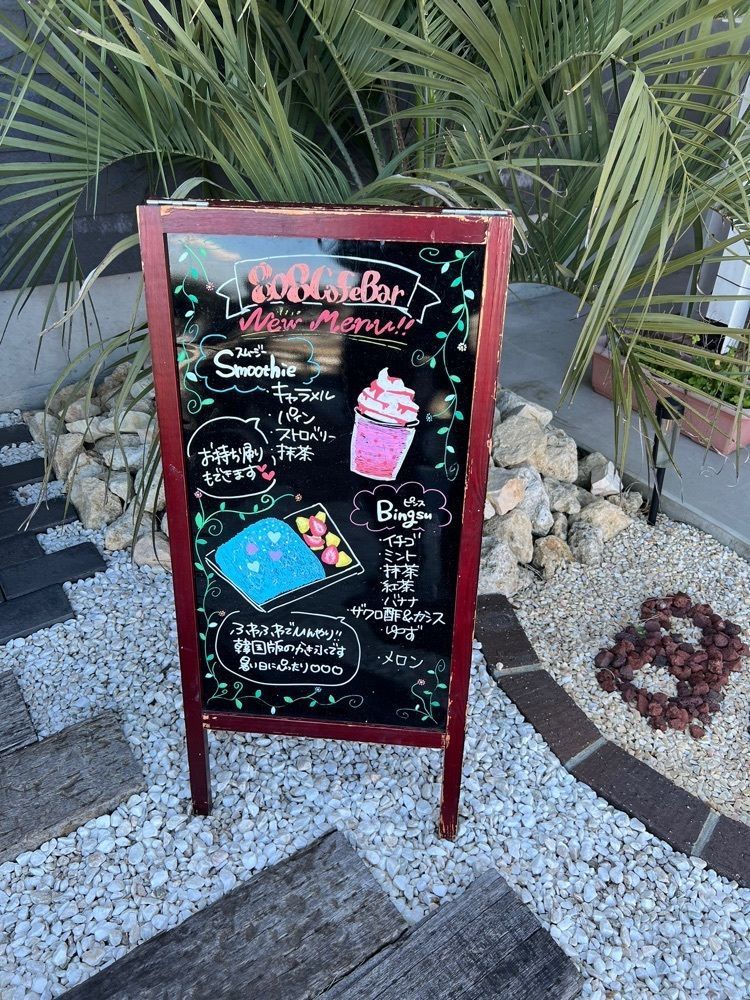 808CafeBar
New Menu!!
スムージー
Smoothie
・キャラメル
・パイン
ストロベリー
・抹茶
お持ち帰り
もできます
ピンス
Bingsu
・イチゴ
・ミント
・抹茶
・紅茶
・バナナ
・ザクロ酢&カシス
・ゆず
・メロン
ふわふわでひんやり!!
韓国版のかき氷です
暑い日にぴったり○○○